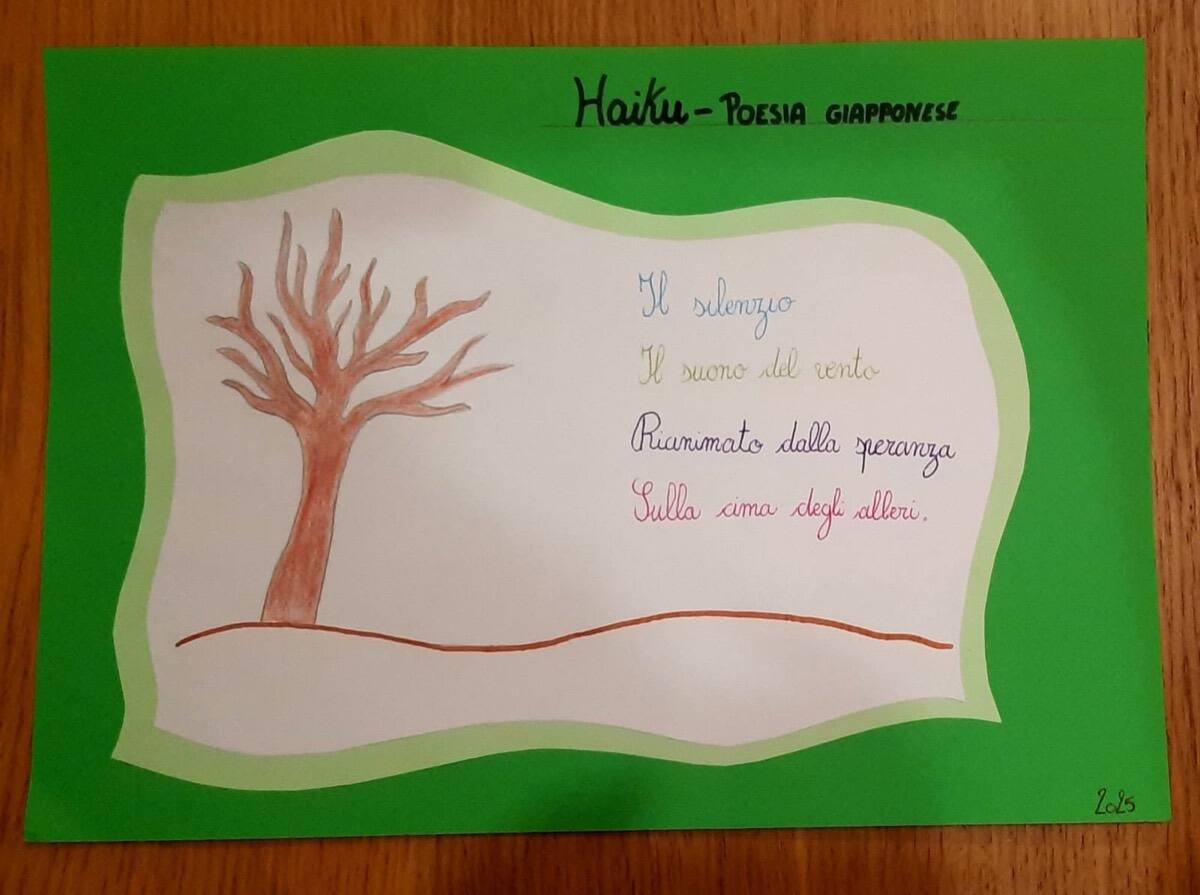 Haiku - POESIA GIAPPONESE
Il silenzio
Il suono del vento
Rianimato dalla speranza
Sulla cima degli alberi.
2025